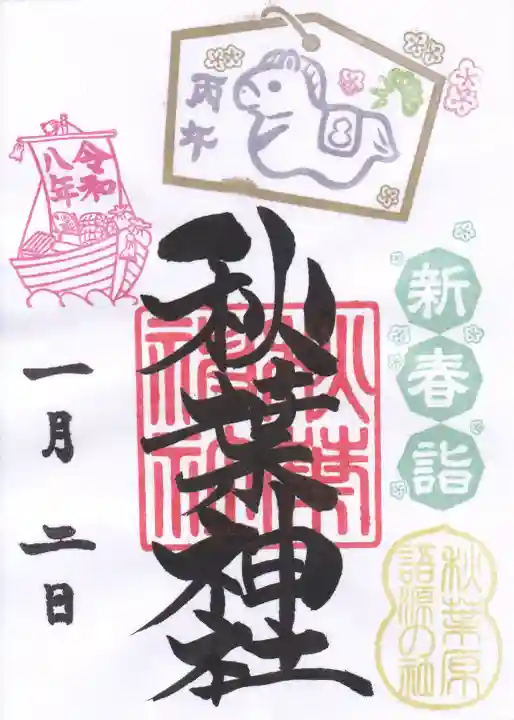 丙午
8
令和
八年
新春詣
秋葉神社
一月二日
秋葉原
語源の社